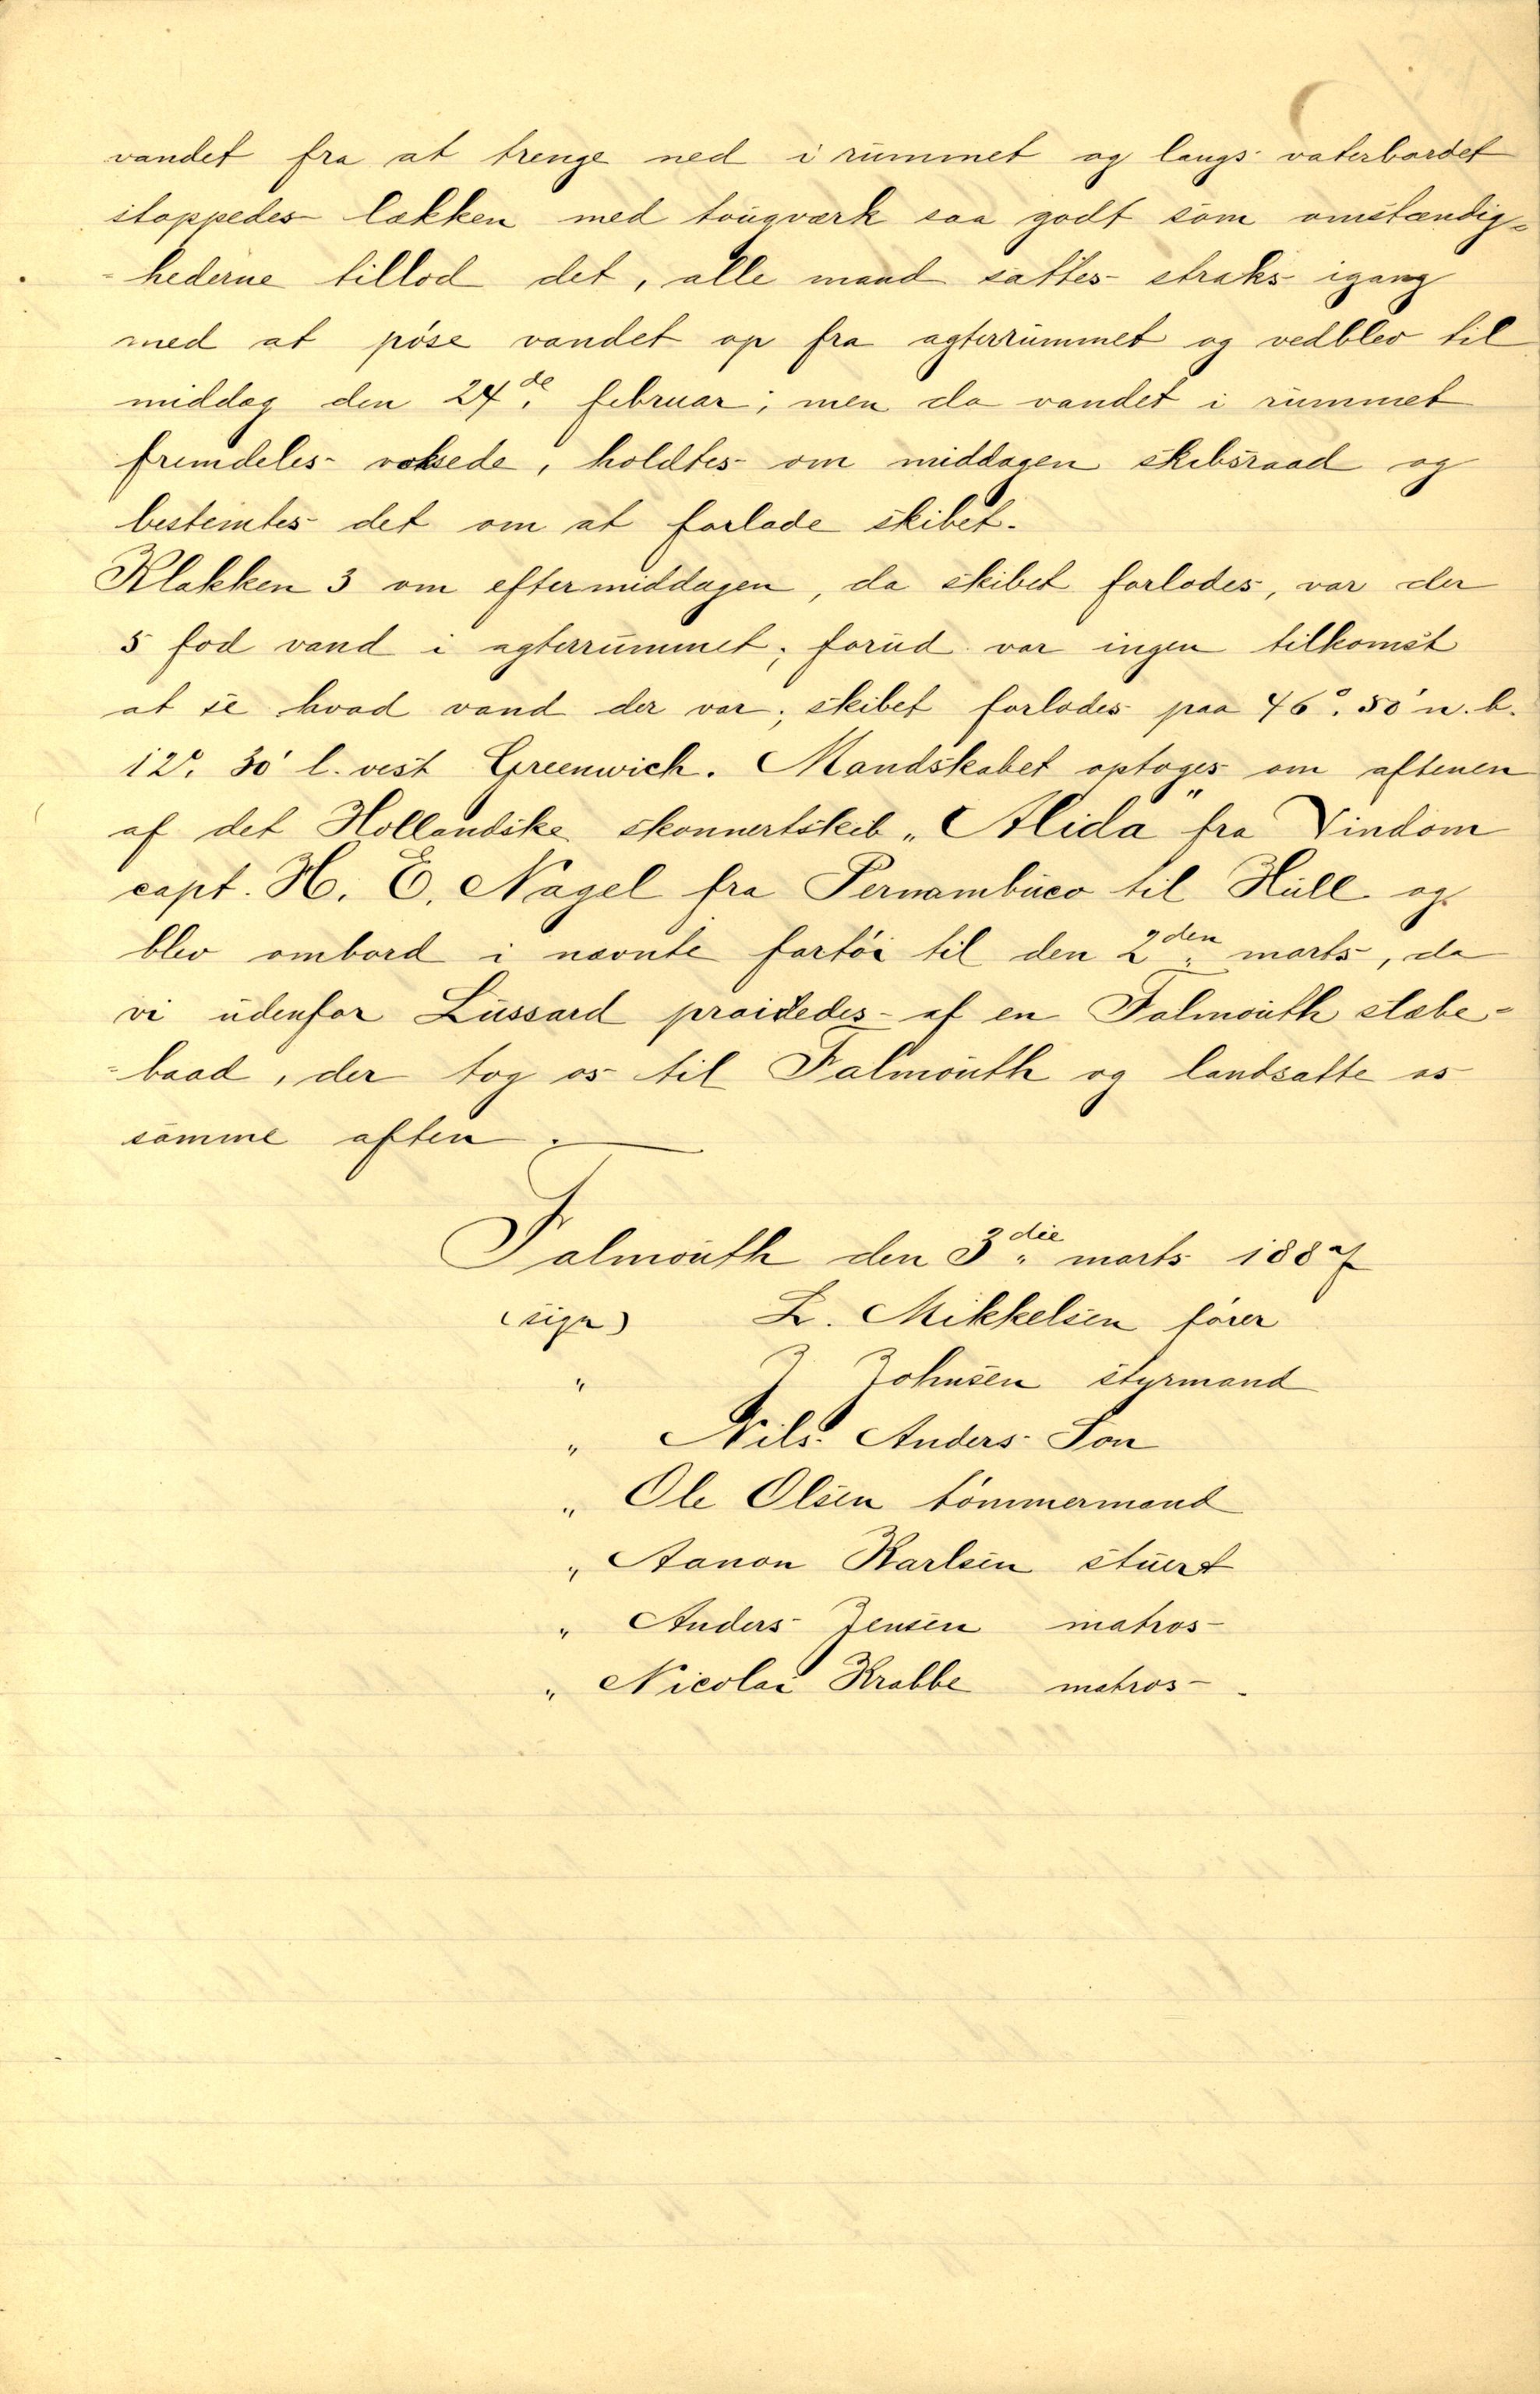 vandet fra at trenge ned i rummet og langs vaterbordet
stoppedes lækken med tougværk saa godt som omstændig=
=hederne tillod det, alle mand sattes straks igang
med at pöse vandet op fra agterrummet og vedblev til
middag den 24de februar; men da vandet i rummet
fremdeles voksede, holdtes om middagen skibsraad og
bestemtes det om at forlade skibet.
Klokken 3 om eftermiddagen, da skibet forlodes, var der
5 fod vand i agterrummet; forud var ingen tilkomst
at se hvad vand der var; skibet forlodes paa 46°. 50' n. b.
12°. 30' l. vest Greenwich. Mandskabet optoges om aftenen
af det Hollandske skonnertskib „Alida" fra Vindom
capt. H. E. Nagel fra Pernambuco til Hull og
blev ombord i nævnte fartöi til den 2den marts, da
vi udenfor Lussard praiedes af en Falmouth slæbe=
=baad, der tog os til Falmouth og landsatte os
samme aften.
Falmouth den 3die marts 1887
(sign) L. Mikkelsen förer
" J Johnsen styrmand
" Nils Anders Son
" Ole Olsen tömmermand
" Aanon Karlsen stuert
" Anders Jensen matros
" Nicolai Krabbe matros.